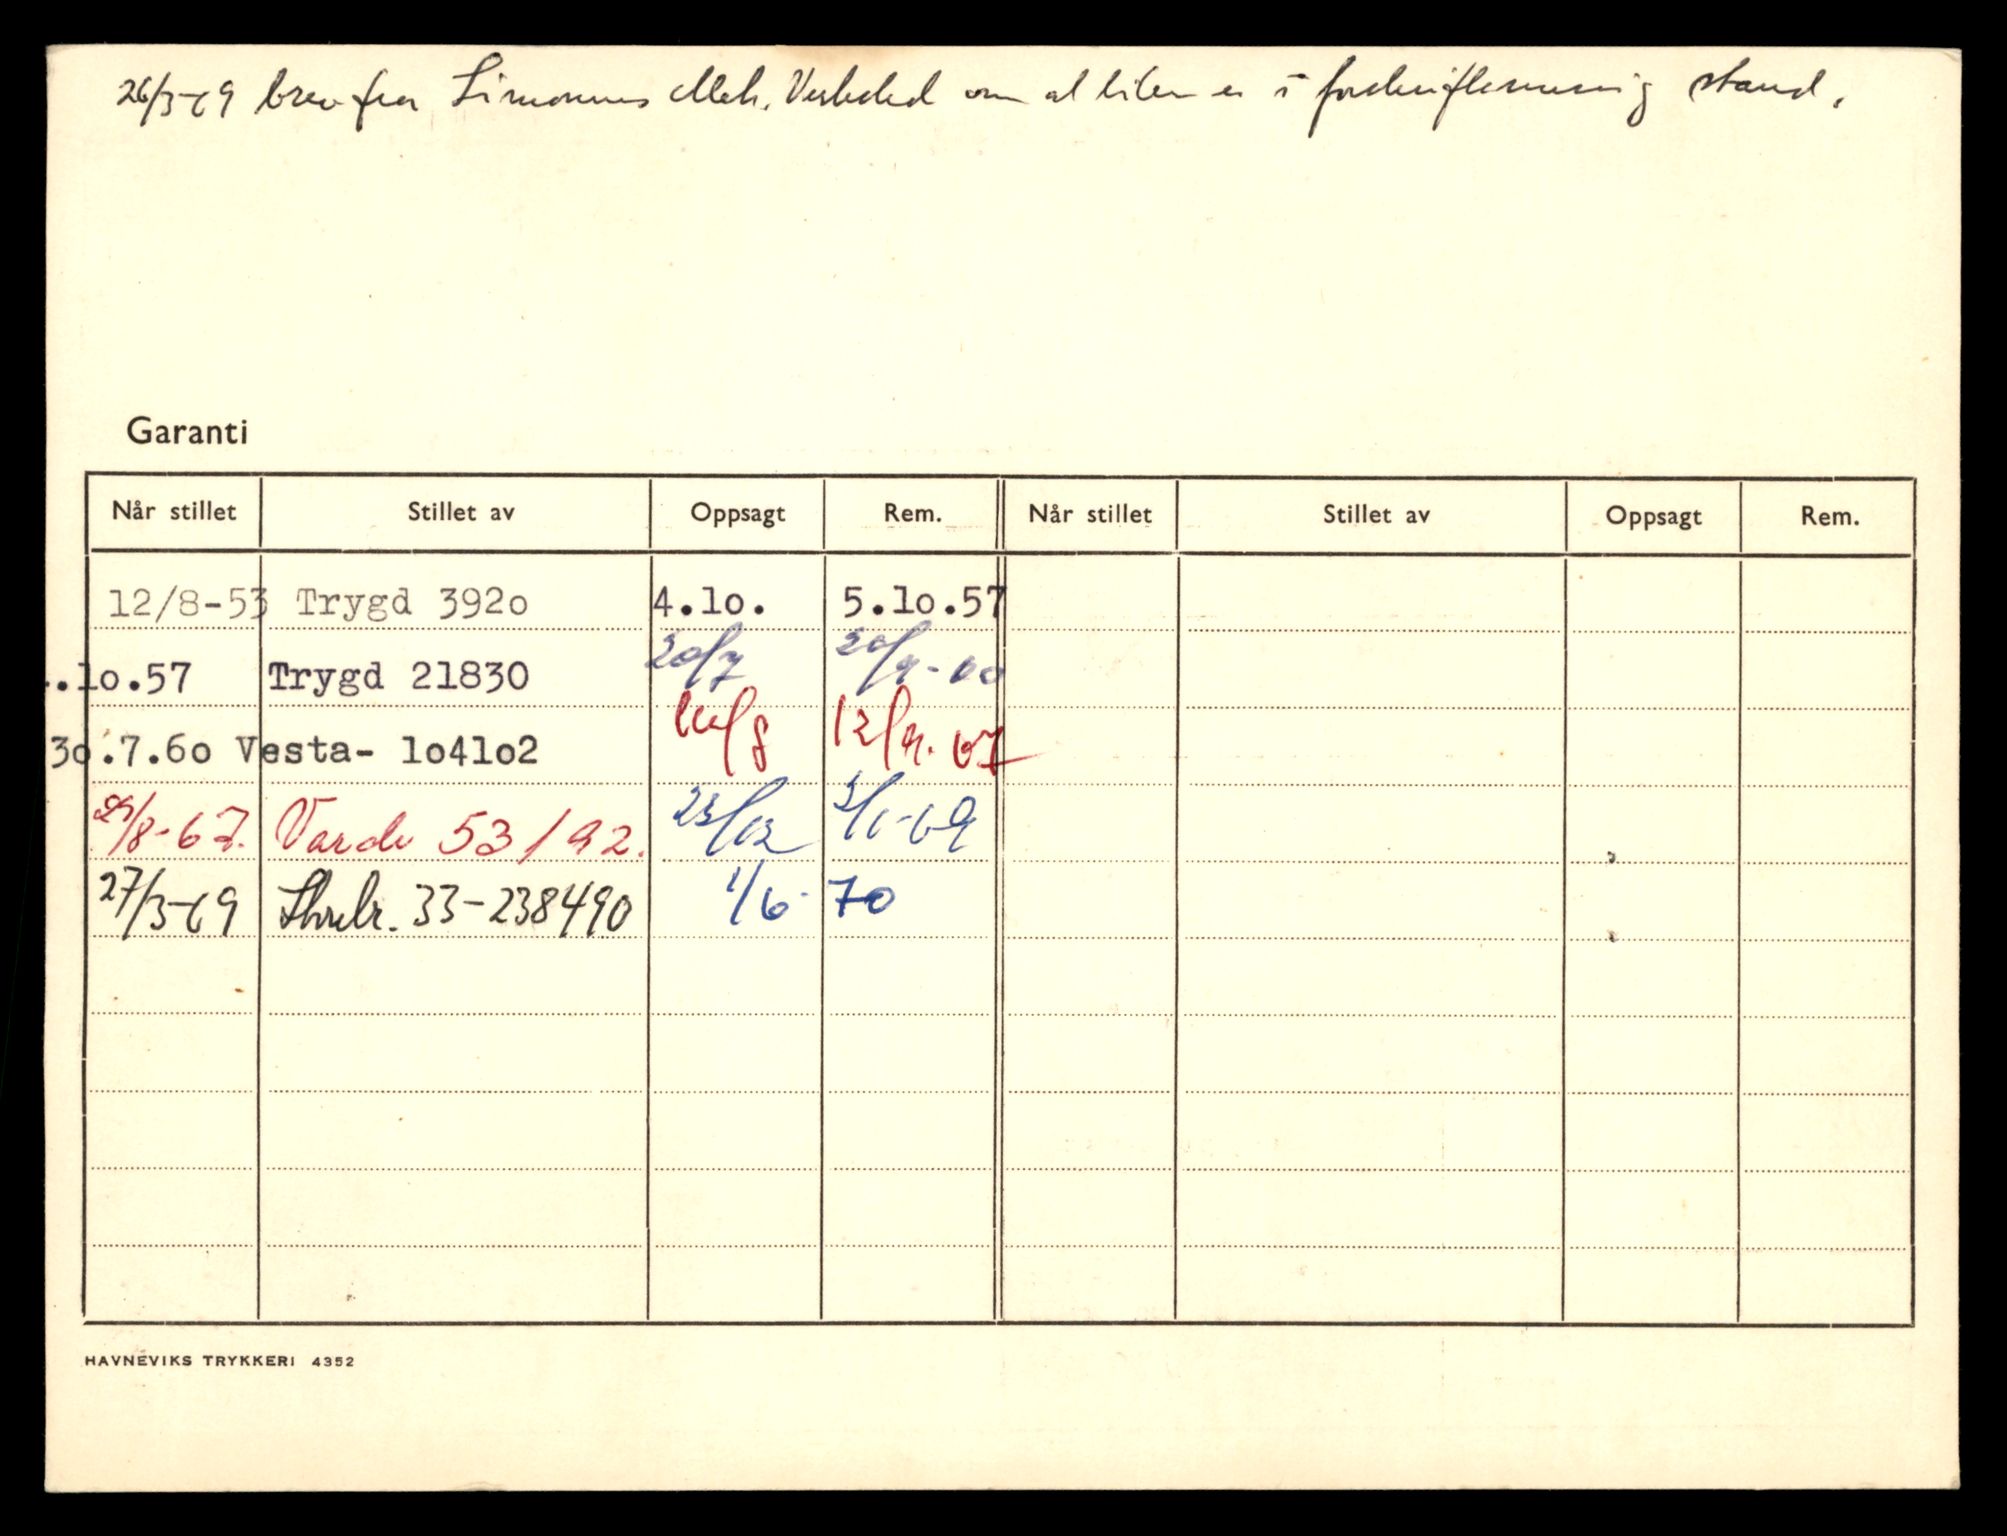 26/3-69 brev fra Simonnes Mek. Verksted om at bilen er i forskriftsmessig stand.
Garanti
Når stillet Stillet av Oppsagt Rem. Når stillet Stillet av Oppsagt Rem.
12/8-53 Trygd 392o 4.1o. 5.1o.57
.1o.57 Trygd 21830 20/7 20/9-60
3o.7.6o Vesta- 1o41o2 /8 12/9.67
/8-67. Varde 53192. 23/12 3/1-69
27/3-69 33-238490 1/6- 70
HAVNEVIKS TRYKKERI 4352